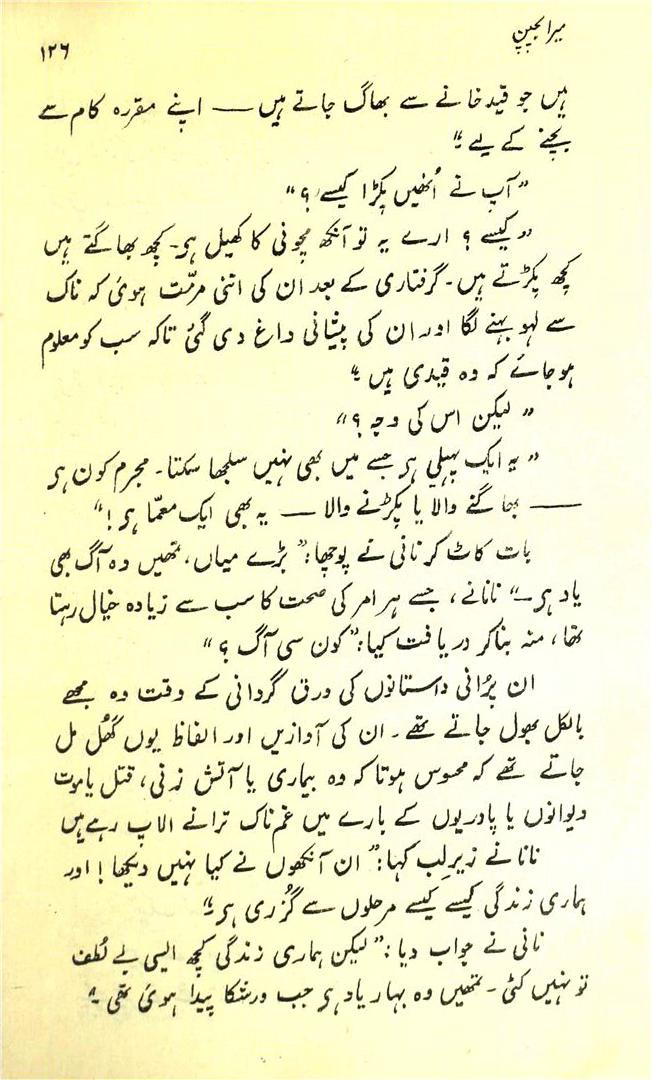 میرا بچپن
۱۲۶
ہیں جو قید خانے سے بھاگ جاتے ہیں — اپنے مقررہ کام سے
بچنے کے لیے ‘‘
’’آپ نے اُنھیں پکڑا کیسے؟‘‘
’’کیسے؟ ارے یہ تو آنکھ مچونی کا کھیل ہی۔ کچھ بھاگتے ہیں
کچھ پکڑتے ہیں۔ گرفتاری کے بعد ان کی اتنی مرمّت ہوئی کہ ناک
سے لہو بہنے لگا اور ان کی پیشانی داغ دی گئی تاکہ سب کو معلوم
ہو جائے کہ وہ قیدی ہیں ‘‘
’’لیکن اس کی وجہ؟‘‘
’’یہ ایک پہیلی ہی جسے میں بھی نہیں سلجھا سکتا۔ مجرم کون ہی
— بھاگنے والا یا پکڑنے والا — یہ بھی ایک معمّا ہی!‘‘
بات کاٹ کر نانی نے پوچھا:’’ بڑے میاں، تمھیں وہ آگ بھی
یاد ہی۔‘‘ نانا نے، جسے ہر امر کی صحت کا سب سے زیادہ خیال رہتا
تھا، منہ بناکر دریافت کیا:’’ کون سی آگ؟‘‘
ان پُرانی داستانوں کی ورق گردانی کے وقت وہ مجھے
بالکل بھول جاتے تھے۔ ان کی آوازیں اور الفاظ یوں گھُل مل
جاتے تھے کہ محسوس ہوتا کہ وہ بیماری یا آتش زنی، قتل یا موت
دیوانوں یا پادریوں کے بارے میں غم ناک ترانے الاپ رہے ہیں
نانا نے زیرِلب کہا:’’ ان آنکھوں نے کیا نہیں دیکھا! اور
ہماری زندگی کیسے کیسے مرحلوں سے گزُری ہی ‘‘
نانی نے جواب دیا:’’ لیکن ہماری زندگی کچھ ایسی بے لُطف
تو نہیں کٹی۔ تمھیں وہ بہار یاد ہی جب ورشکا پیدا ہوئی تھی ‘‘